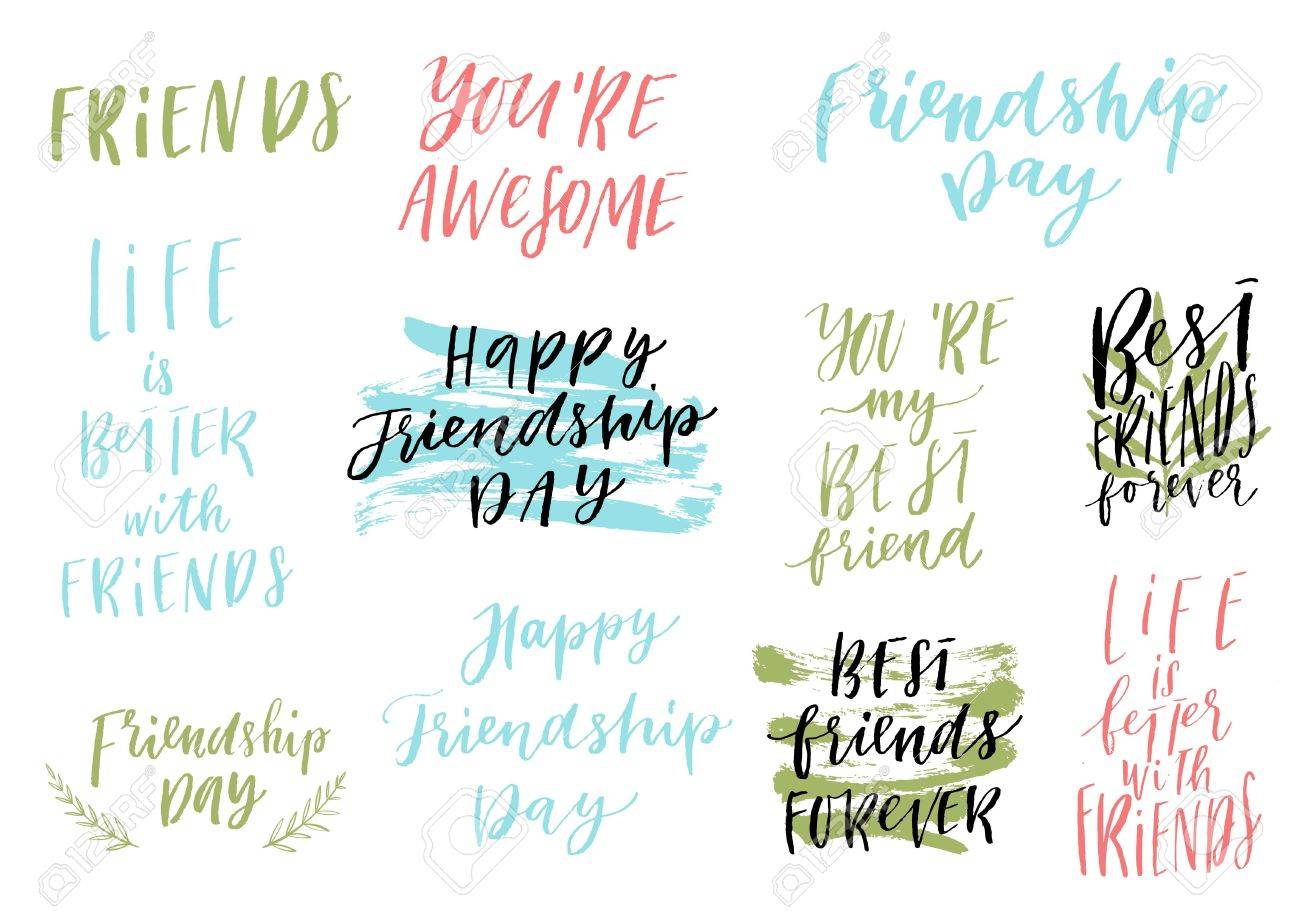 FRiENDS
YOU'RE
AWESOME
Friendship
Day
LiFE
is
BETTER
with
FRiENDS
Happy
Friendship
DAY
YOU'RE
my
BEST
friend
BEST
FRIENDS
forever
Friendship
DAY
Happy
Friendship
Day
BEST
friends
FOREVER
LiFE
is
better
with
FRiENDS
123RF